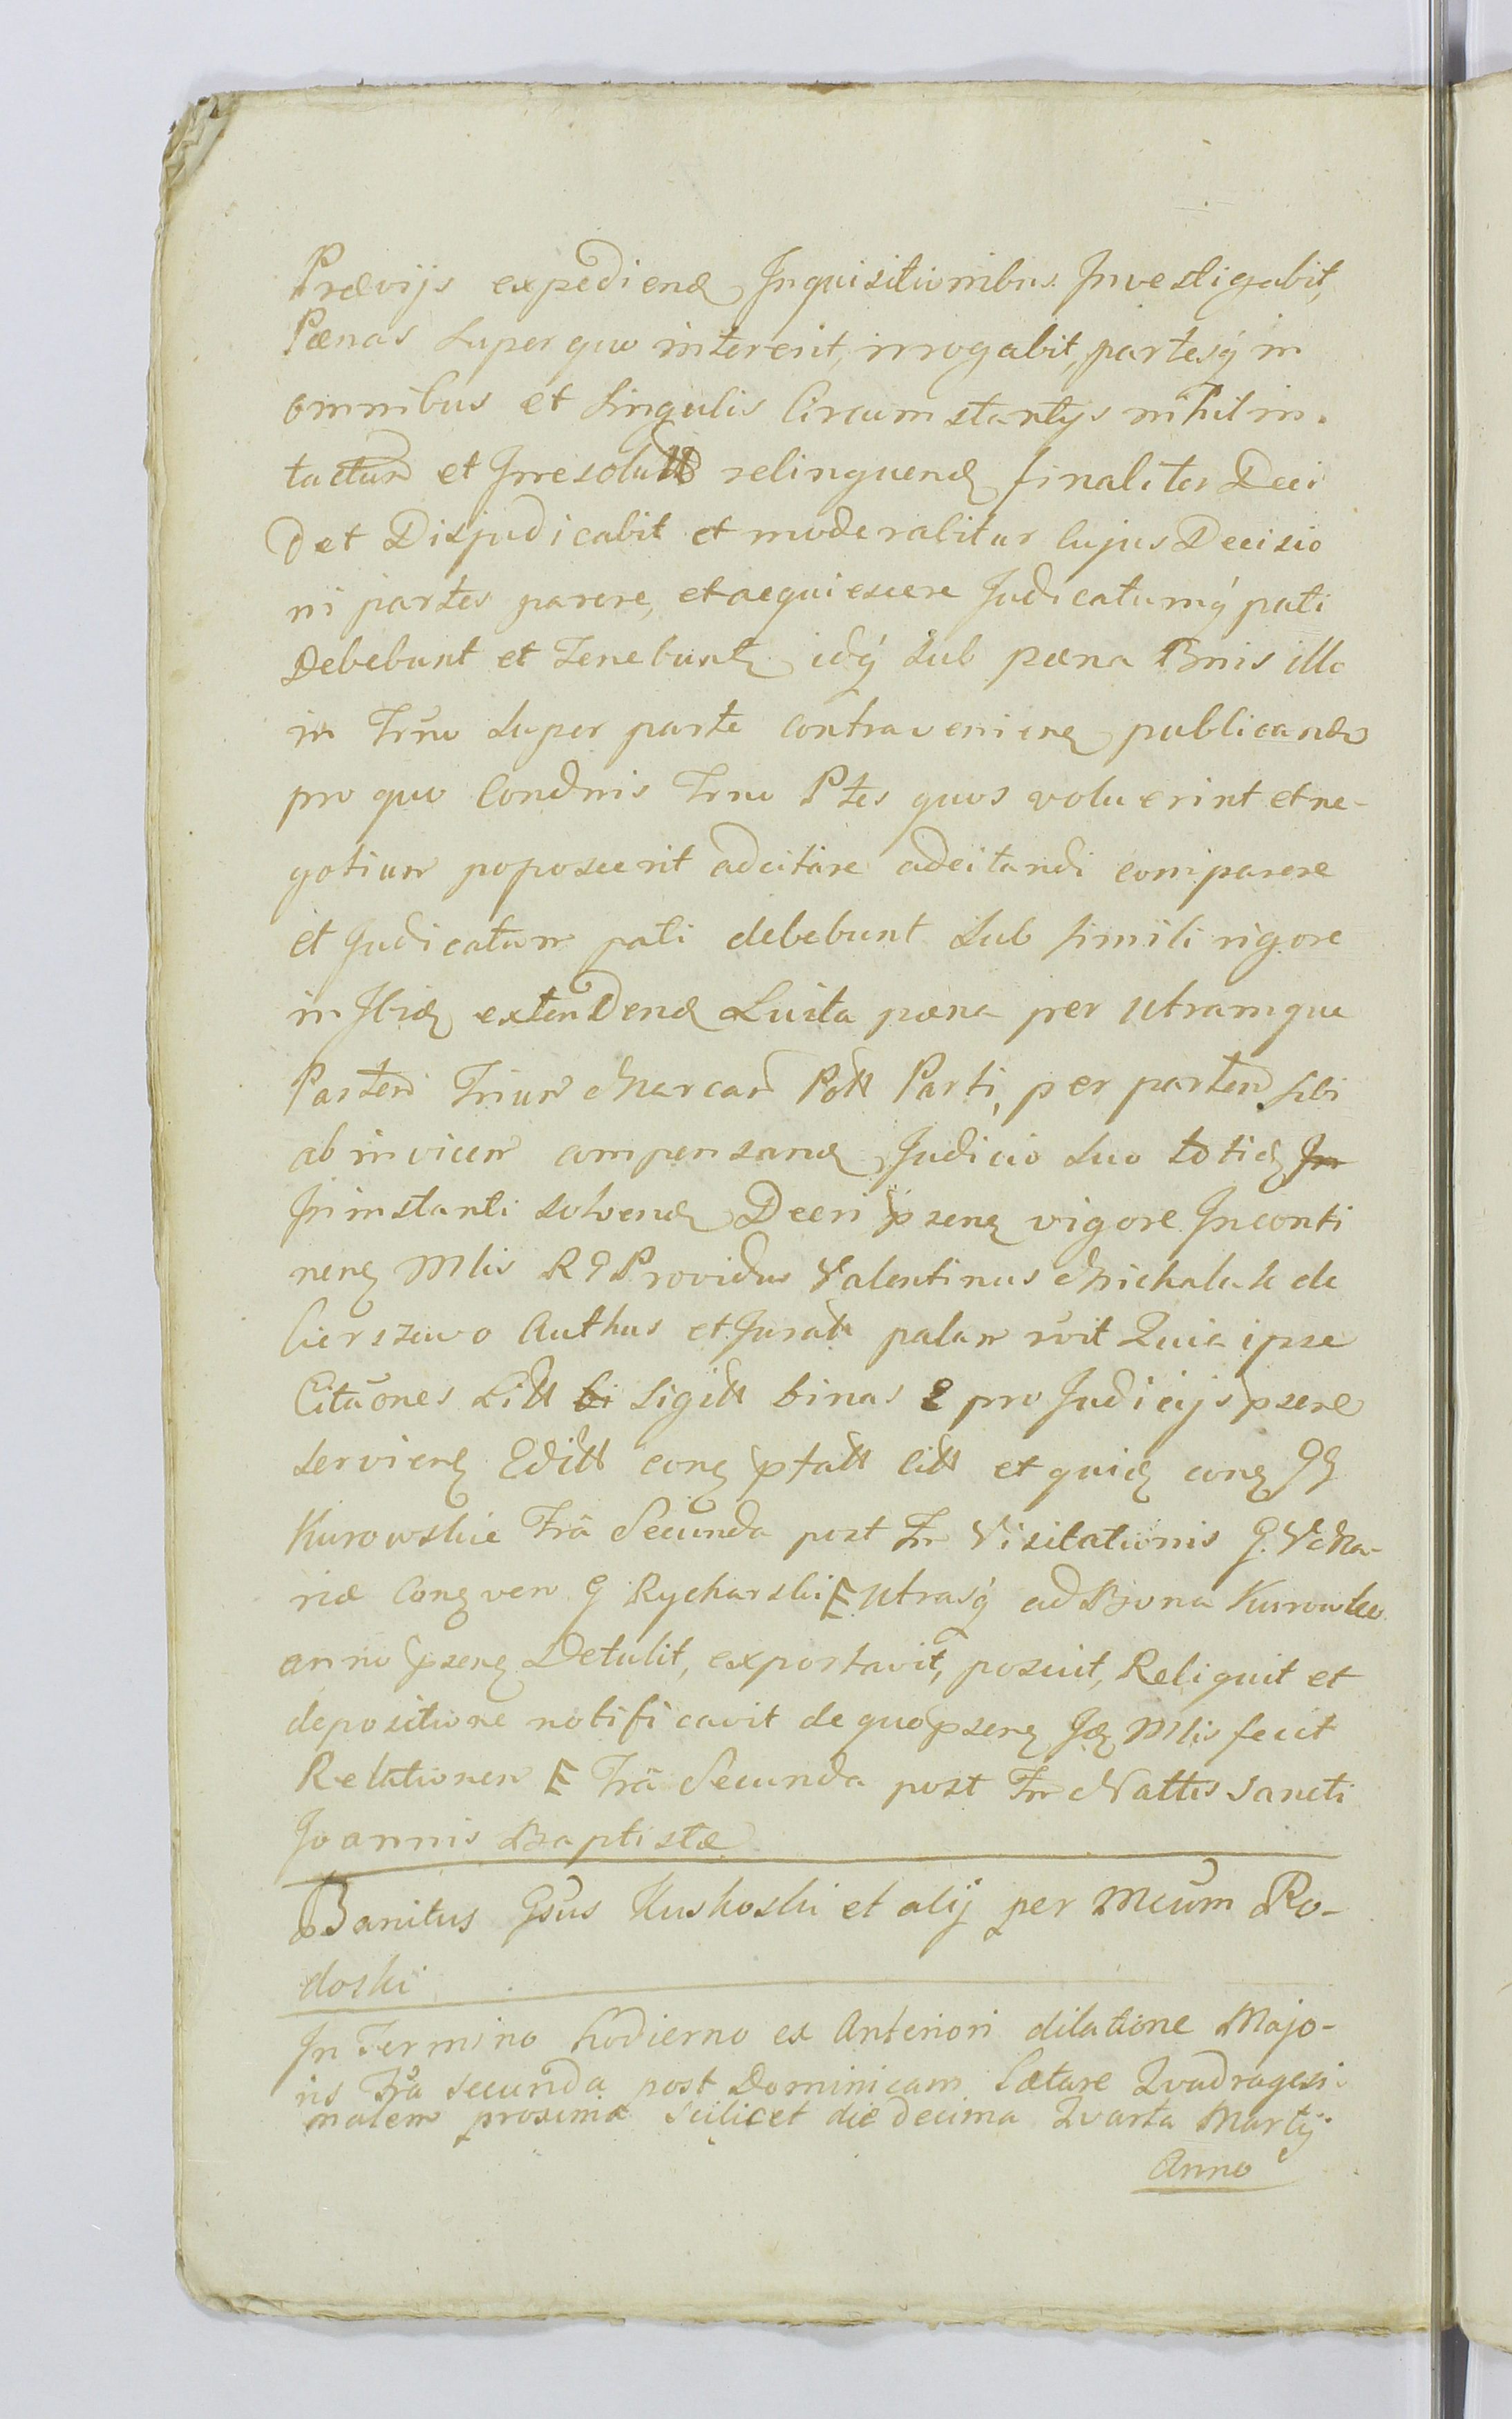 Prævijs expediend Inquisitionibus Investigabit,
Pænas super quo intererit, irrogabit, partesq́ in
omnibus et singulis Circumstantijs nihil in-
tactum et Irresolutt relinquend finaliter Deci
det Disjudicabit et moderabitur Cujus Decisio
ni partes parere, et acquiescere Judicatumq́ pati
Debebunt et Tenebunt idq́ sub pæna Bnis illo
in Trno super parte contravenien publicando
pro quo Condnis Trno Ptes quos voluerint et ne-
gotium poposcerit adcitare adcitandi comparere
et Judicatum pati debebunt sub simili rigore
in Ibid extendend Luita pæna per utramque
Partem Trium Marcar Pott Parti, per partem sibi
ab invicem compensand Judicio suo totid In
In instanti solvend Decri pzen vigore Inconti
nen Mlis R Providus Valentinus Michalak de
Cierszewo Authus et Juratt palam rvit Quia ipse
Citãones Litt bi Sigitt binas 2 pro Judicijs pzen
servien Editt con pfatt Citt et quid con GG
Kurowskie Frã Secunda post Fm Visitationis G. V Ma-
riæ Con ven G Rycharski E utrasq́ ad Bona Kurowko
anno pzen Detulit, exportavit, posuit, Reliquit et
depositione notificavit de quo pzen Id Mlis fecit
Relationem E Frã Secunda post Fm Nattis Sancti
Joannis Baptistæ
Banitus Gsus Kuskoski et alij per Mcum Ro-
doski
In Termino hodierno ex Anteriori dilatione Majo-
ris Frã secunda post Dominicam Lætare Quadragesi-
malem proxima scilicet die decima Quarta Martij
Anno